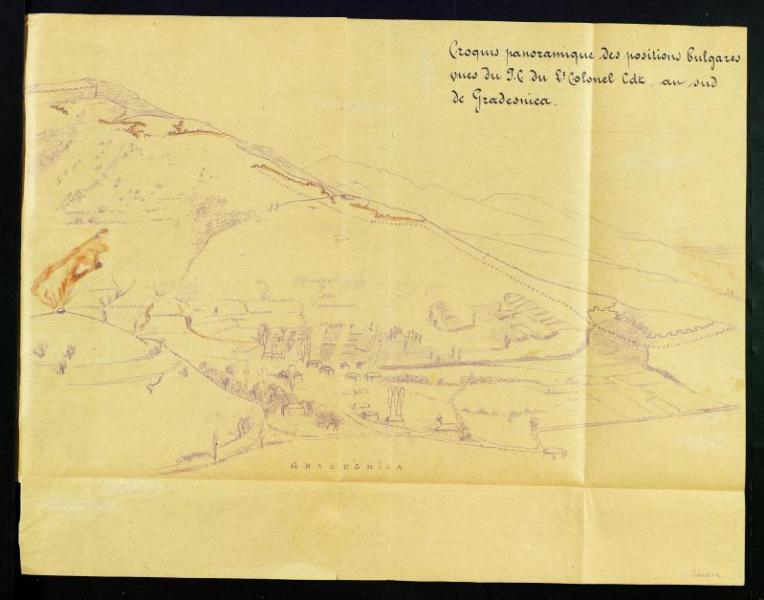 Croquis panoramique des positions bulgares
vues du P.C du Lt Colonel Cdt au sud
de Gradesnica.
GRADESNICA